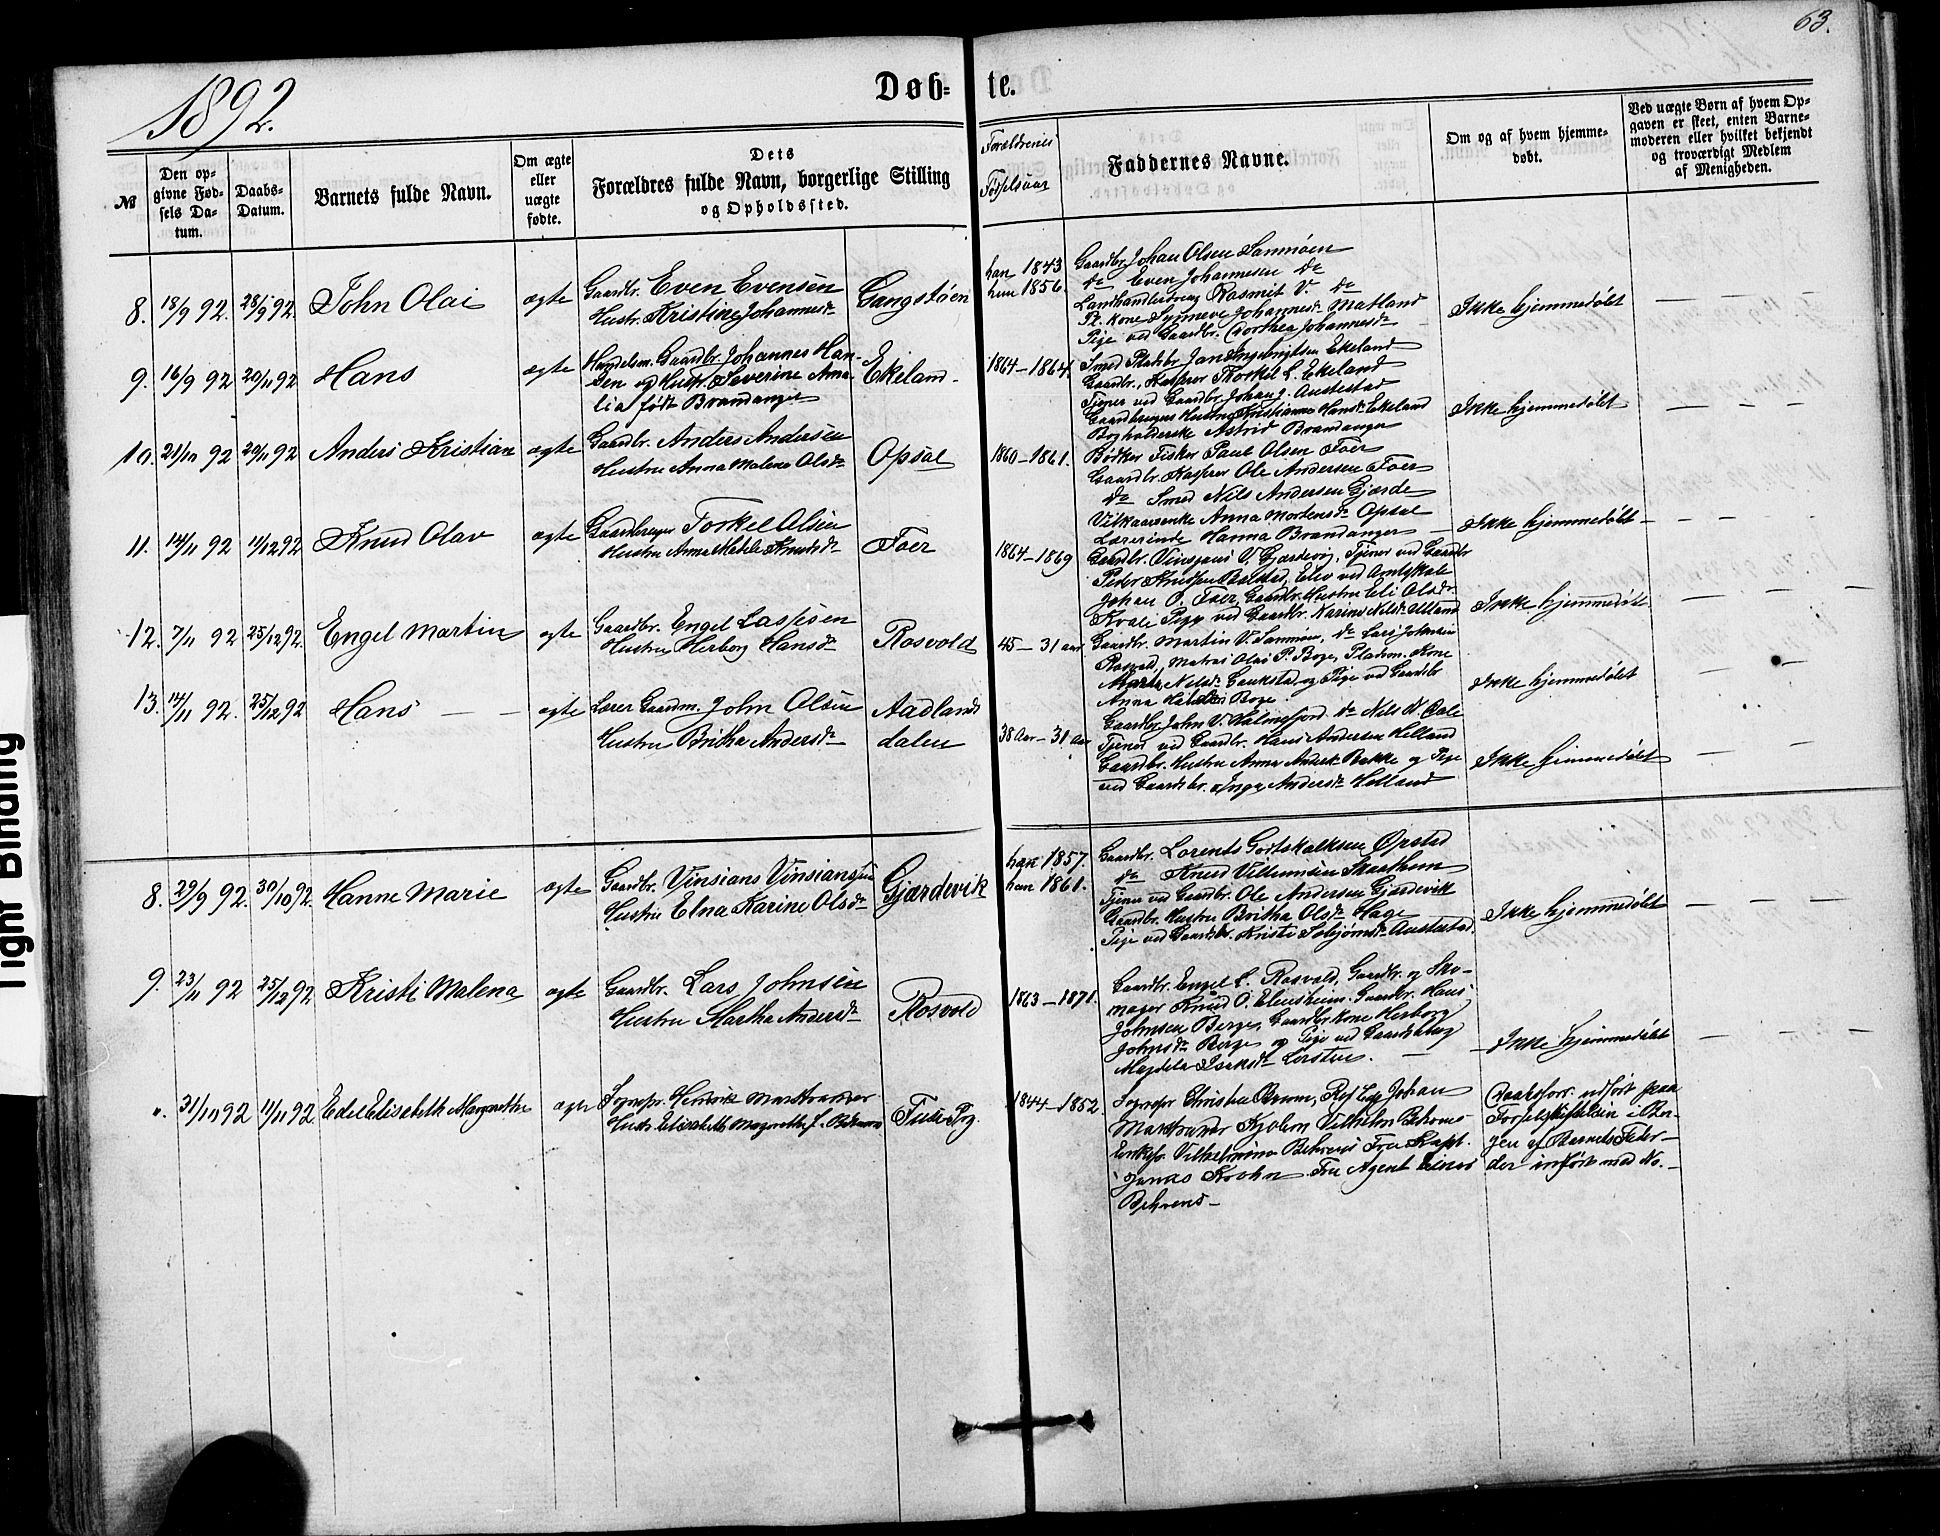 63.
1892.
Døb-te.
№
Den opgivne Fødsels Datum.
Daabs-Datum.
Barnets fulde Navn.
Om ægte eller uægte fødte.
Dets Forældres fulde Navn, borgerlige Stilling og Opholdssted.
Forældrenes Fødselsaar
Faddernes Navne.
Om og af hvem hjemmedøbt.
Ved uægte Børn af hvem Opgaven er skeet, enten Barnemoderen eller hvilket bekjendt og troværdigt Medlem af Menigheden.
8. 18/9 92. 28/9 92. John Olai ægte
Gaardbr. Even Evensen
Hustr. Kristine Johannesdr
Gangstøen
han 1843
hun 1856.
Gaardbr. Johan Olsen Samnøen
do Even Johannesen do
Rasmus V. do
Kone Synneve Johannesdr Matland
Pige ved Gaardbr. Dorthea Johannesdr
Ikke hjemmedøbt
9. 16/9 92 20/11 92 Hans ægte
Handelsm. Gaardbr. Johannes Han-
sen og Hustr. Severine Ama-
lia født Brandanger
Ekeland
1864-1864.
Smed Pladsbr. Jan Ekeland
Gaardbr., Kasserer Thorkel L. Ekeland
Tjener ved Gaardbr. Johan J. Austestad
Gaardbrugers Hustru Kristianne Hansdr Ekeland
Bogholderske Astrid Brandanger
Ikke hjemmedøbt
10. 21/10 92 20/11 92 Anders Kristian ægte
Gaardbr. Anders Andersen
Hustru Anna Malena Olsdr
Opsal
1860-1861.
Bøtker Fisker Paul Olsen Foer
Gaardbr. Kasserer Ole Andersen Foer
do Smed Nils Andersen Gjerde
Vilkaarsenke Anna Mortensdr Opsal
Lærerinde Hanna Brandanger
Ikke hjemmedøbt
11. 14/11 92 11/12 92 Knud Olav ægte
Gaardbruger Torkel Olsen
Hustru Anna Metele Knudsdr
Foer
1864-1869
Gaardbr. Vinsjans V. Gjærdevig, Tjener ved Gaardbr
Peder Knudsen Bolstad, Elev ved Amtsskole
Johan O. Foer, Gaardbr. Hustru Eli Olsdr.
Kvale Pige ved Gaardbr. Karina Nilsdr
Ikke hjemmedøbt
12. 7/11 92 25/12 92. Engel Martin ægte
Gaardbr. Engel Lassesen
Hustru Herborg Hansdr
Rosvold
45-31 aar
Gaardbr. Martin V. Samnøen, do Lars Johnsen
Rosvold, Matros Olai P. Boge, Pladsm. Kone
Marta Nilsdr Gaukstad og Pige ved Gaardbr
Anna Boge.
Ikke hjemmedøbt
13. 14/11 92. 25/12 92 Hans ægte
Lærer Gaardm. John Olsen
Hustru Britha Andersdr
Aadlands
dalen
38 Aar-31 Aar
Gaardbr. John V. Holmefjord do Nils N. Dale
Tjener ved Gaardbr. Hans Andersen Helland
Gaardbr. Hustru Anna Andersdr Bakke og Pige
ved Gaardsbr. Inga Andersdr Helland
Ikke hjemmedøbt
8. 29/9 92. 30/10 92. Hanne Marie ægte
Gaardbr. Vinsians Vinsiansen
Hustru Elna Karine Olsdr
Gjærdevik
han 1857.
hun 1861.
Gaardbr. Lorents Gortskalksen Ørsted
do Knud Villumsen Skaathun
Tjener ved Gaardbr. Ole Andersen Gjærdevik
Gaardbr. Hustru Britha Olsdr Hage
Pige ved Gaardbr. Kristi Austestad.
Ikke hjemmedøbt
9. 23/11 92 25/12 92. Kristi Malena ægte
Gaardbr. Lars Johnsen
Hustru Martha Andersdr
Rosvold
1863-1871.
Gaardbr. Engel L. Rosvold, Gaardbr. og Sko-
mager Knud O. Gaardbr. Hans
Johnsen Berge, Gaardbr. Kone Herborg
Johnsdr Berge og Pige ved Gaardsbrug
Magdela Isaksdr
Ikke hjemmedøbt
". 31/10 92 11/11 92. Edel Elisabeth Margrethe ægte
Sognepr. Henrik Marstrander
Hustr. Elisabeth Magrethe f. Behrens
Fuse Pg.
1844-1852
Sognepr Christen Brun, Johan
Marstrander Kjøbm. Vilhelm Behrens
Vilhelmina Behrens Fru Kapt.
Jonas Krohn Fru Agent Einar
Behrens
Daabsforr. udført paa
Fødselsstiftelsen i Ber-
gen af Barnets Fader
der indført med No.
Tight Binding